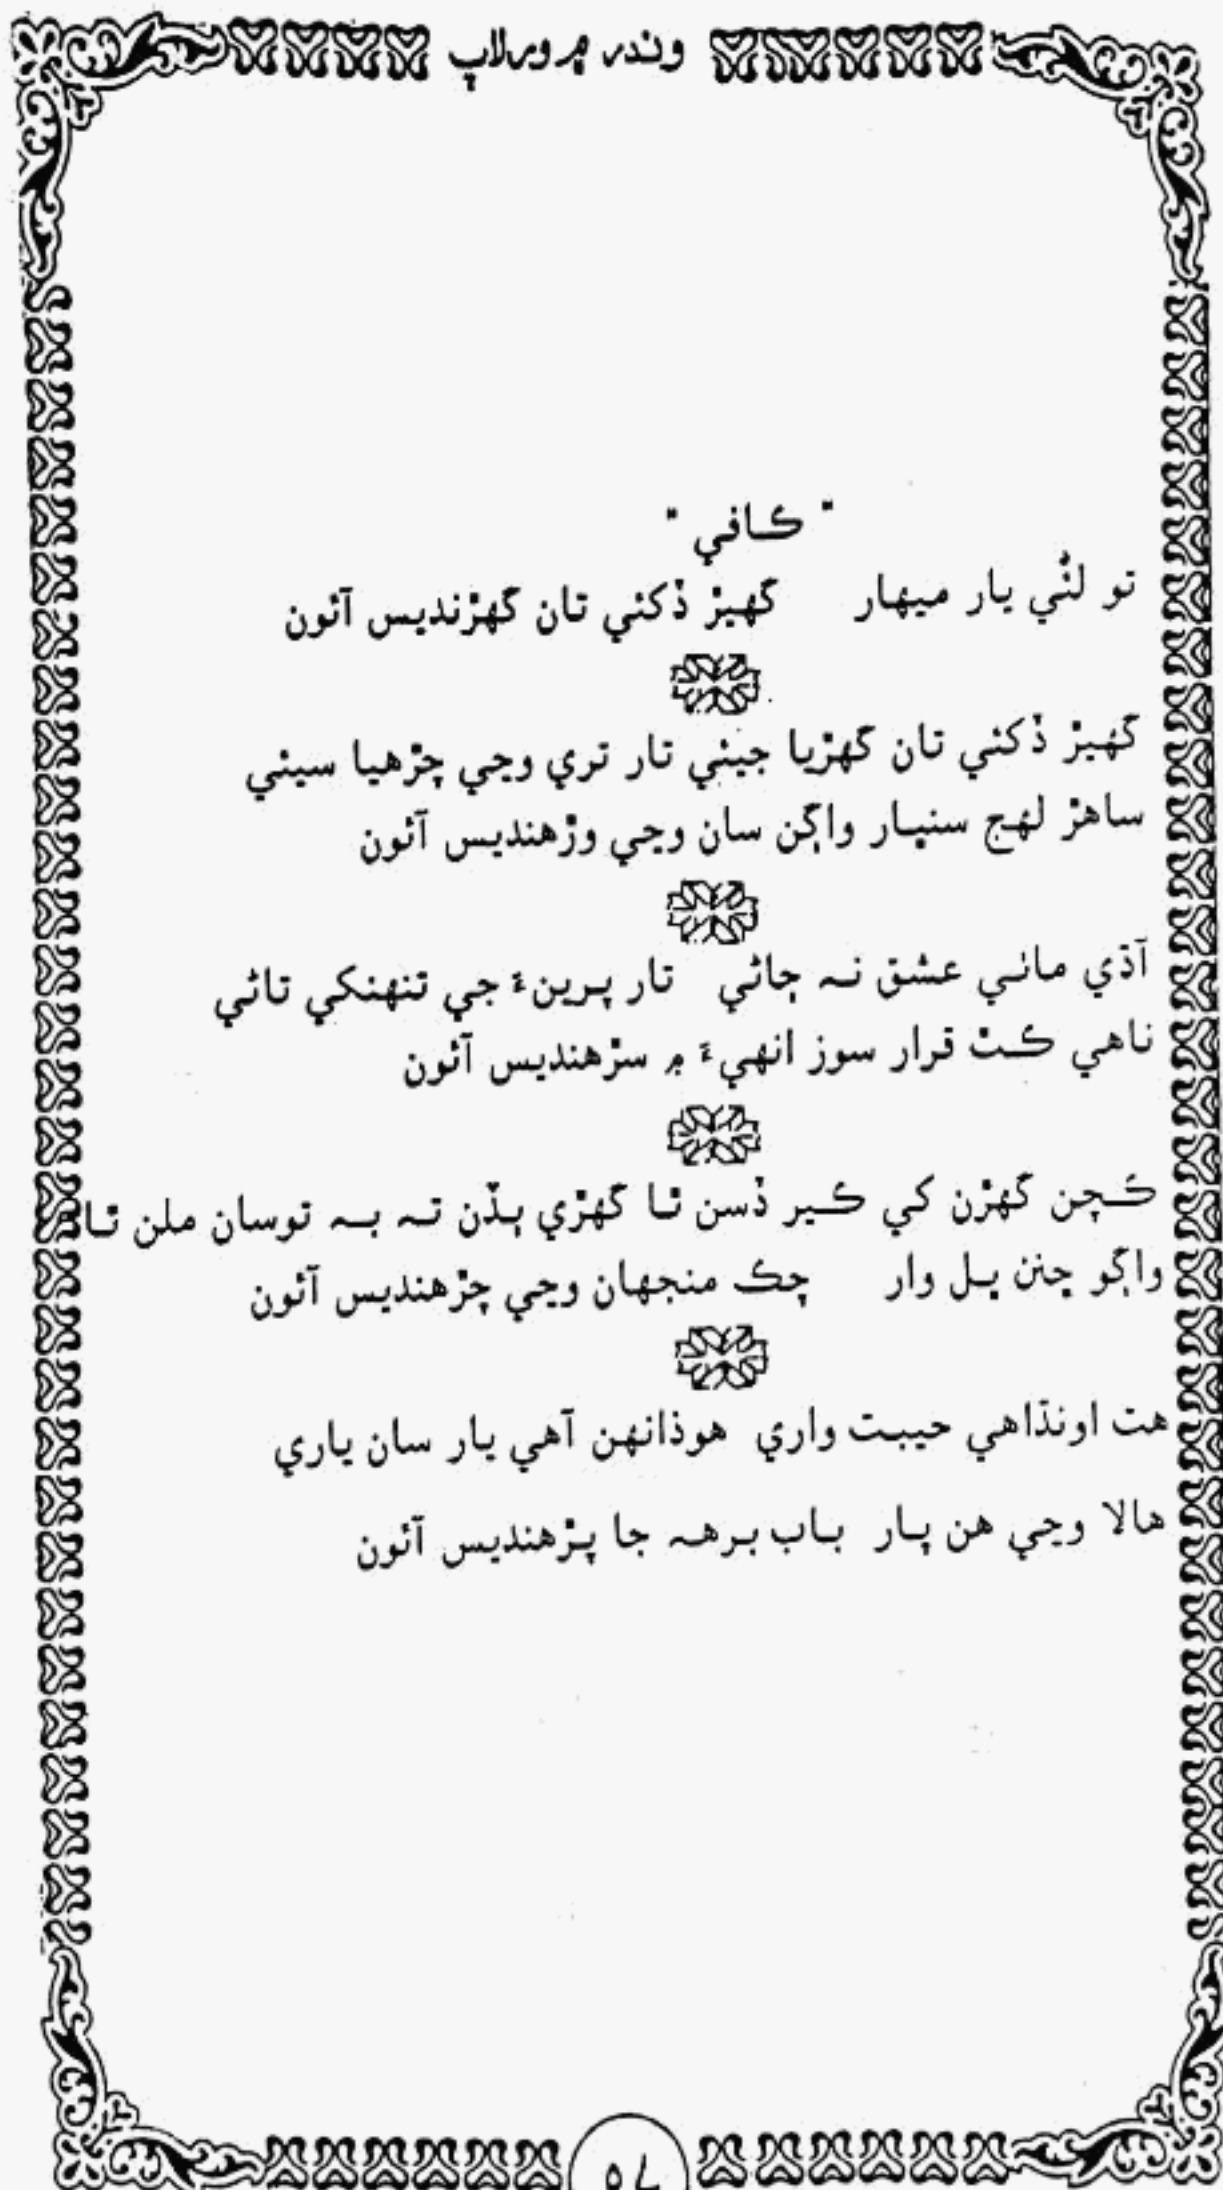 وندر ۾ ورلاپ
" ڪافي "
تو لئي يار ميهار گهيڙ ڏکئي تان گهڙنديس آئون
گهيڙ ڏکئي تان گهڙيا جيئي تار تري وڃي چڙهيا سيئي
ساهڙ لهج سنڀار واڳن سان وڃي وڙهنديس آئون
آڌي ماڻي عشق نہ ڄاڻي تار پرينءَ جي تنهنکي تاڻي
ناهي ڪٿ قرار سوز انهيءَ ۾ سڙهنديس آئون
ڪچن گهڙن کي ڪير ڏسن ٿا گهڙي ٻڏن تہ بہ توسان ملن ٿا
واڳو چنن پل وار چڪ منجهان وڃي چڙهنديس آئون
هت اونڌاهي حيبت واري هوڏانهن آهي يار سان ياري
هالا وڃي هن پار باب برهہ جا پڙهنديس آئون